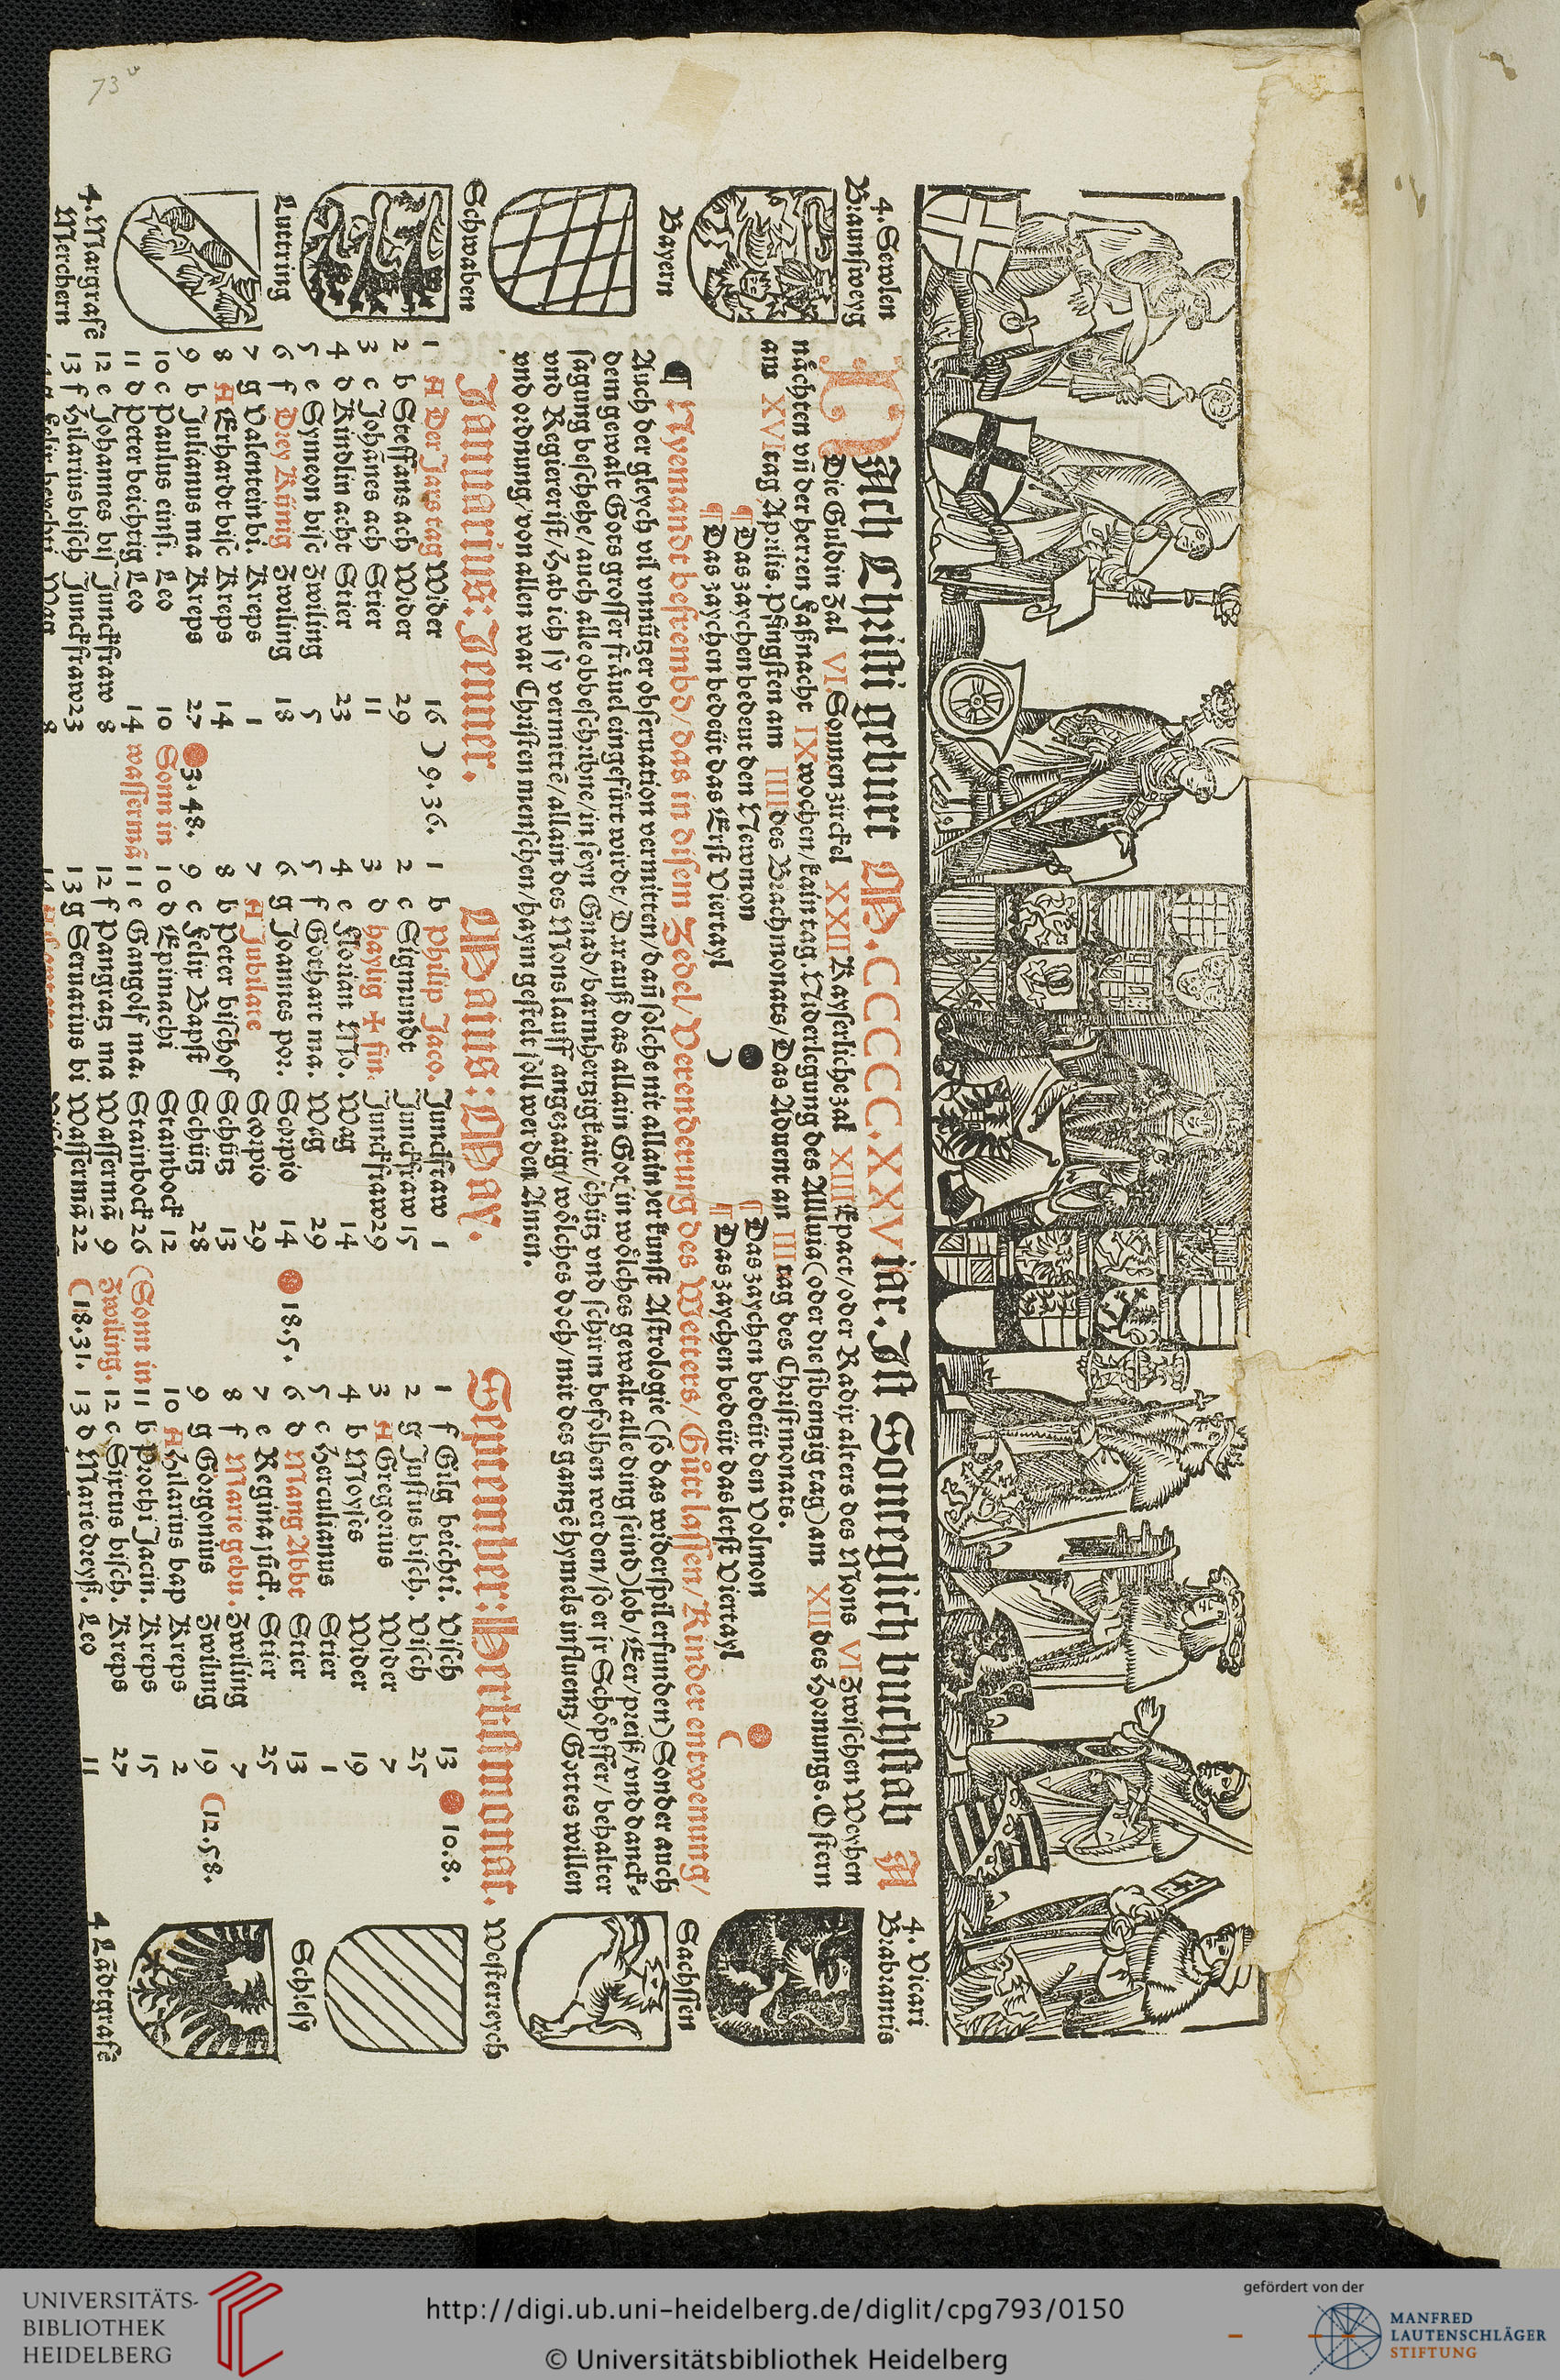 73v
4. Sewlen
Braunsweyg
Bayern
Schwaben
Luttring
4. Margrafē
Merchern
4. Vicari
Brabantis
Sachssen
Westerreych
Schlesy
4 Lādtgrafē
NAch Christi geburt M.CCCCC.XXV jar. Ist Sonteglich buchstab A
Die Guldin Zal VI. Sonnen zirckel XXII Kayserliche zal XIII Epact/oder Radix alters des Mons VI Zwischen Weyhen
nächten vn̄ der herren Faßnacht IX wochen/kain tag. Niderlegung des Alleluia (oder die sibentzig tag) am XII des Hornungs. Ostern
am XVI tag Aprilis. Pfingsten am IIII des Brachmonats/Das Aduent an III tag des Christmonats.
¶ Das zaychen bedeut den Newmon
¶ Das zaychen bedeüt den Volmon
¶ Das zaychen bedeüt das Erst Viertayl )
¶ Das zaychen bedeüt das letst Viertayl (
¶ Nyemandt befrembd/das in disem Zedel/Verenderung des Wetters/Gůtt lassen/Kinder entwenung/
Auch der gleych vil vnnützer obseruation vermitten/dan̄ solche nit allain zerkunst Astrologie (so das widerspil erfunden) Sonder auch
dem gewalt Gots grosser fräuel eingefürt wirdt/Darauß das allain Got (in wölches gewalt alle ding seind) lob/Eer/preiß/vnd danck-
sagung beschehe/auch alle obbeschribne/in seyn Gnad/barmhertzigkait/schütz vnd schirm befolhen werden/so er jr Schöpffer/behalter
vnd Regierer ist/Hab ich sy vermittē/allain des Mons lauff angezaigt/wölches doch/mit des gantzē hymels influentz/Gottes willen
vnd ordnung/von allen war Christen menschen/haym gestelt soll werden Amen.
Januarius: Jenner.
1 A Der Jars tag Wider 16 ) 9.36.
2 b Steffans ach Wider 29
3 c Johānes ach Stier 11
4 d Kindlin acht Stier 23
5 e Symeon bisc Zwiling 5
6 f Drey Künig Zwiling 18
7 g Valentein bi. Kreps 1
8 A Erhardt bisc Kreps 14
9 b Julianus ma Kreps 27 3.48.
10 c Paulus einsi. Leo 10 Sonn in
11 d Peter beichtig Leo 14 wassermā
12 e Johannes bis Junckfraw 8
13 f Hilarius bisch Junckfraw 23
Maius: May.
1 b Philip Jaco. Junckfraw 1
2 c Sigmundt Junckfraw 15
3 d haylig + fin. Junckfraw 29
4 e Florian Mo. Wag 14
5 f Gothart ma. Wag 29
6 g Joannes por. Scorpio 14 18.5.
7 A Jubilate Scorpio 29
8 b Peter bischof Schütz 13
9 c Felix Bapst Schütz 28
10 d Epimachi Stainbock 12
11 e Gangolf ma. Stainbock 26 (Sonn in
12 f Pangratz ma Wassermā 9 Zwiling.
13 g Seruatius bi Wassermā 22 (18.31.
September: Herbstmonat.
1 f Gilg beichti. Visch 13 10.8.
2 g Justus bisch. Visch 25
3 A Gregorius Wider 7
4 b Moyses Wider 19
5 c Herculianus Stier 1
6 d Mang Abbt Stier 13
7 e Regina jück. Stier 25
8 f Marie gebu. Zwiling 7
9 g Gorgonius Zwiling 19 (12.58.
10 A Hilarius bap Kreps 2
11 b Prothi Jacin. Kreps 15
12 c Sixtus bisch. Kreps 27
13 d Marie dreyß. Leo 11
UNIVERSITÄTS-
BIBLIOTHEK
HEIDELBERG
http://digi.ub.uni-heidelberg.de/diglit/cpg793/0150
© Universitätsbibliothek Heidelberg
gefördert von der
MANFRED
LAUTENSCHLÄGER
STIFTUNG